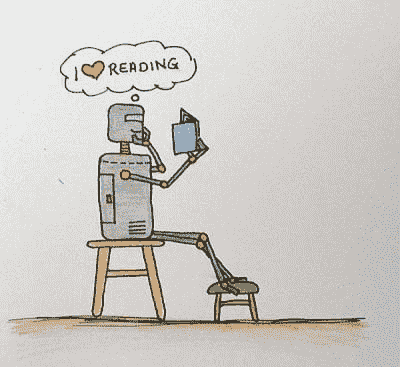 I ❤ READING